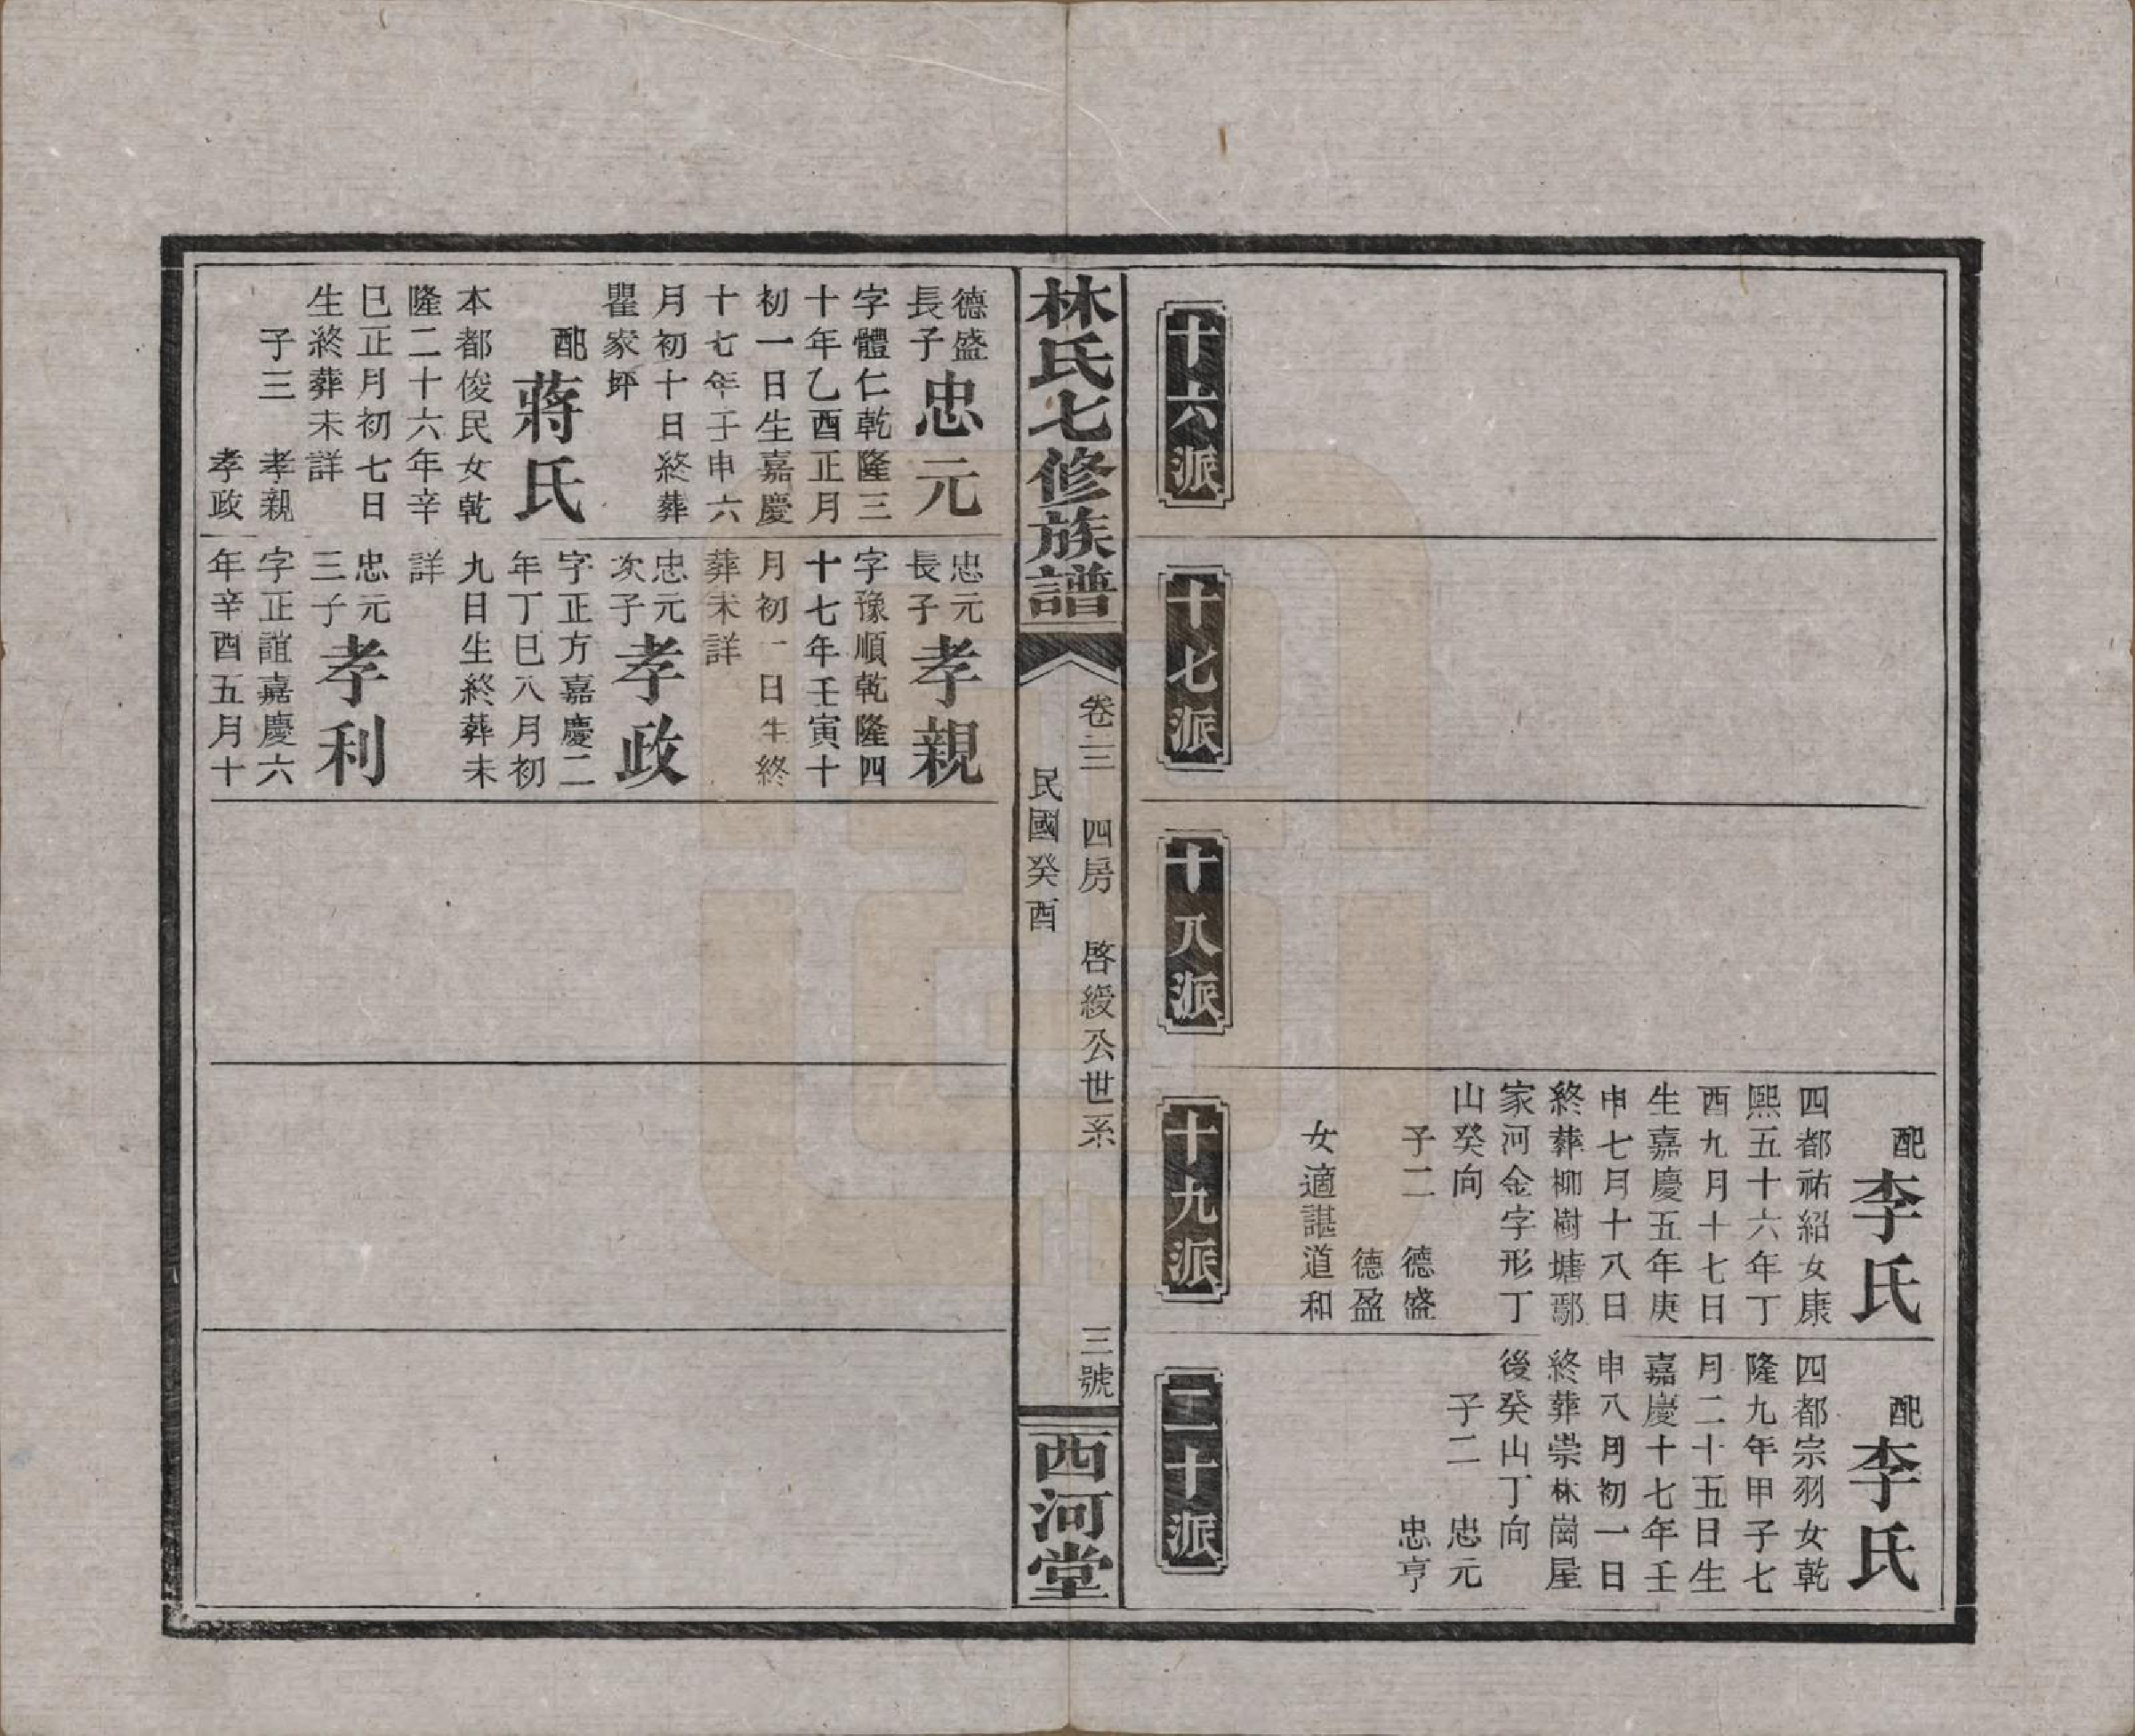 十六派
十七派
十八派
十九派
配
李氏
四都祐紹女康
熙五十六年丁
酉九月十七日
生嘉慶五年庚
申七月十八日
終葬柳樹塘鄢
家河金字形丁
山癸向
子二 德盛
德盈
女適諶道和
二十派
配
李氏
四都宗羽女乾
隆九年甲子七
月二十五日生
嘉慶十七年壬
申八月初一日
終葬崇林崗屋
後癸山丁向
子二 忠元
忠亨
林氏七修族譜
卷三 四房 啓綬公世系 三號
民國癸酉
西河堂
德盛
長子
忠元
字體仁乾隆三
十年乙酉正月
初一日生嘉慶
十七年壬申六
月初十日終葬
瞿家坪
配
蔣氏
本都俊民女乾
隆二十六年辛
巳正月初七日
生終葬未詳
子三 孝親
孝政
忠元
長子
孝親
字豫順乾隆四
十七年壬寅十
月初一日生終
葬未詳
忠元
次子
孝政
字正方嘉慶二
年丁巳八月初
九日生終葬未
詳
忠元
三子
孝利
字正誼嘉慶六
年辛酉五月十